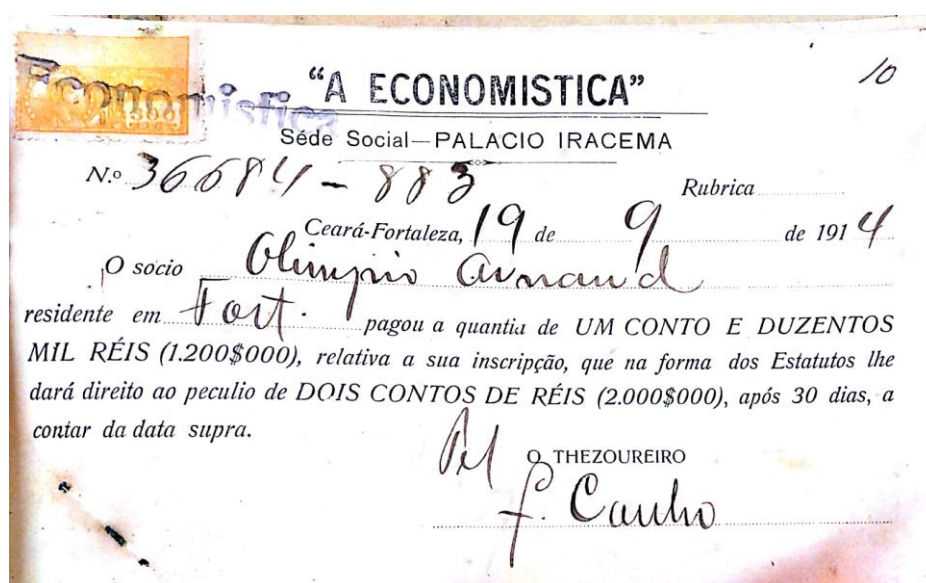 Economistica
300
"A ECONOMISTICA"
10
Séde Social—PALACIO IRACEMA
N.º 36684 - 883 Rubrica
Ceará-Fortaleza, 19 de 9 de 1914
O socio Olimpio Arnaud
residente em Fort. pagou a quantia de UM CONTO E DUZENTOS
MIL RÉIS (1.200$000), relativa a sua inscripção, que na forma dos Estatutos lhe
dará direito ao peculio de DOIS CONTOS DE RÉIS (2.000$000), após 30 dias, a
contar da data supra.
O THEZOUREIRO